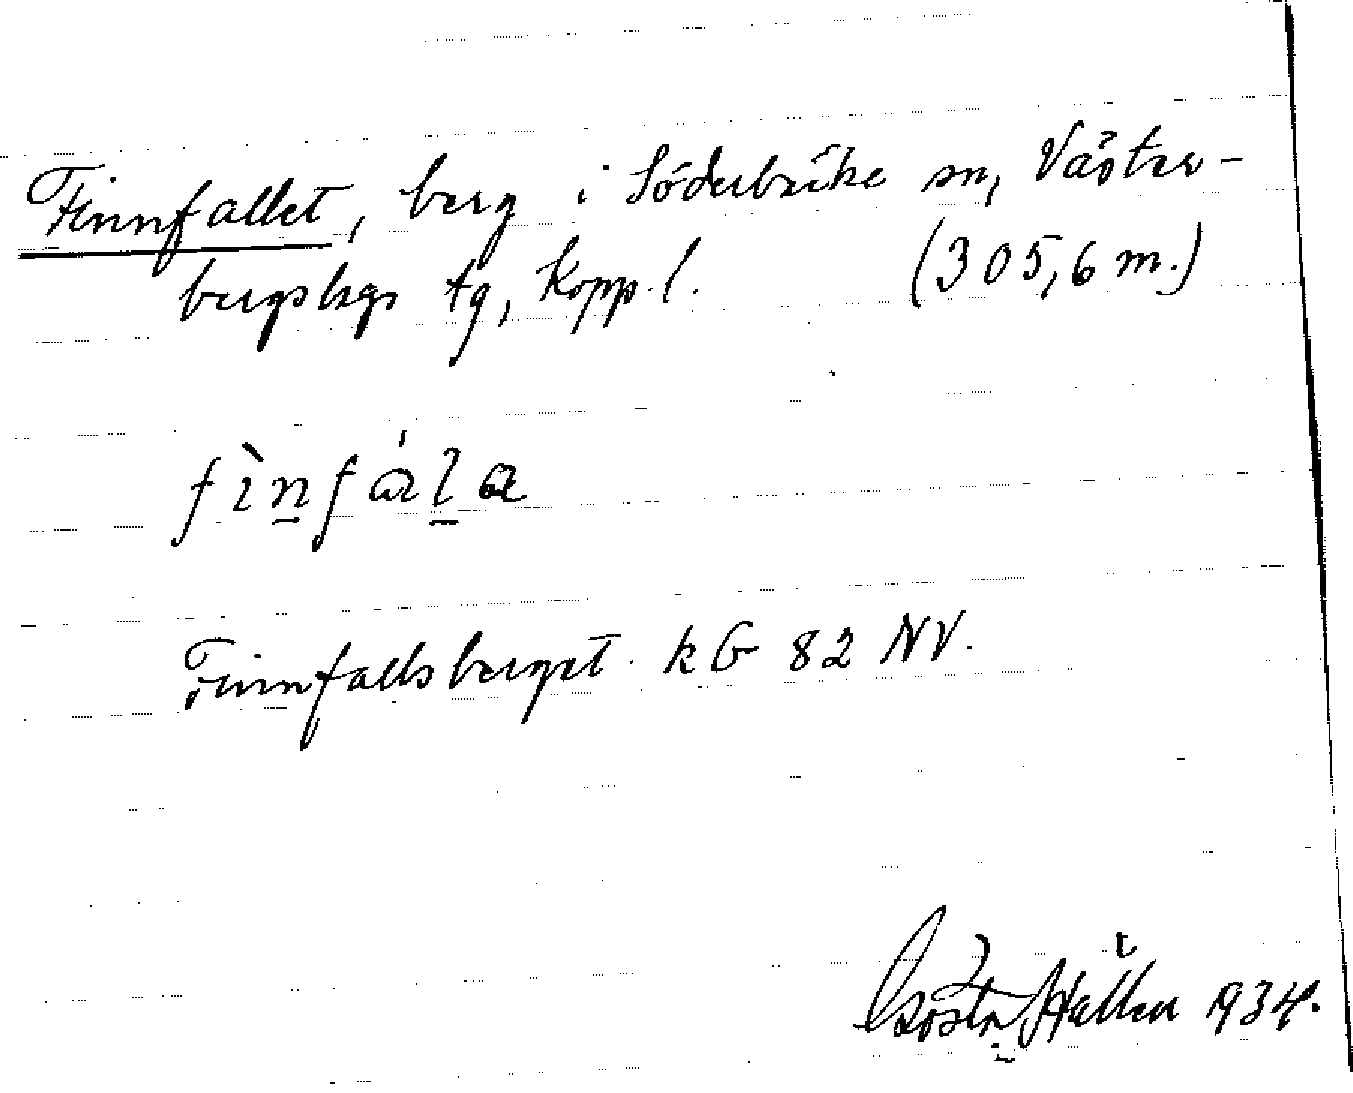 Finnfallet, berg i Söderbärke sn, Väster-
bergslags tg, Kopp. l. (305,6 m.)
fìnfála
Finnfallsberget. kG 82 NV.
Gösta 1934.